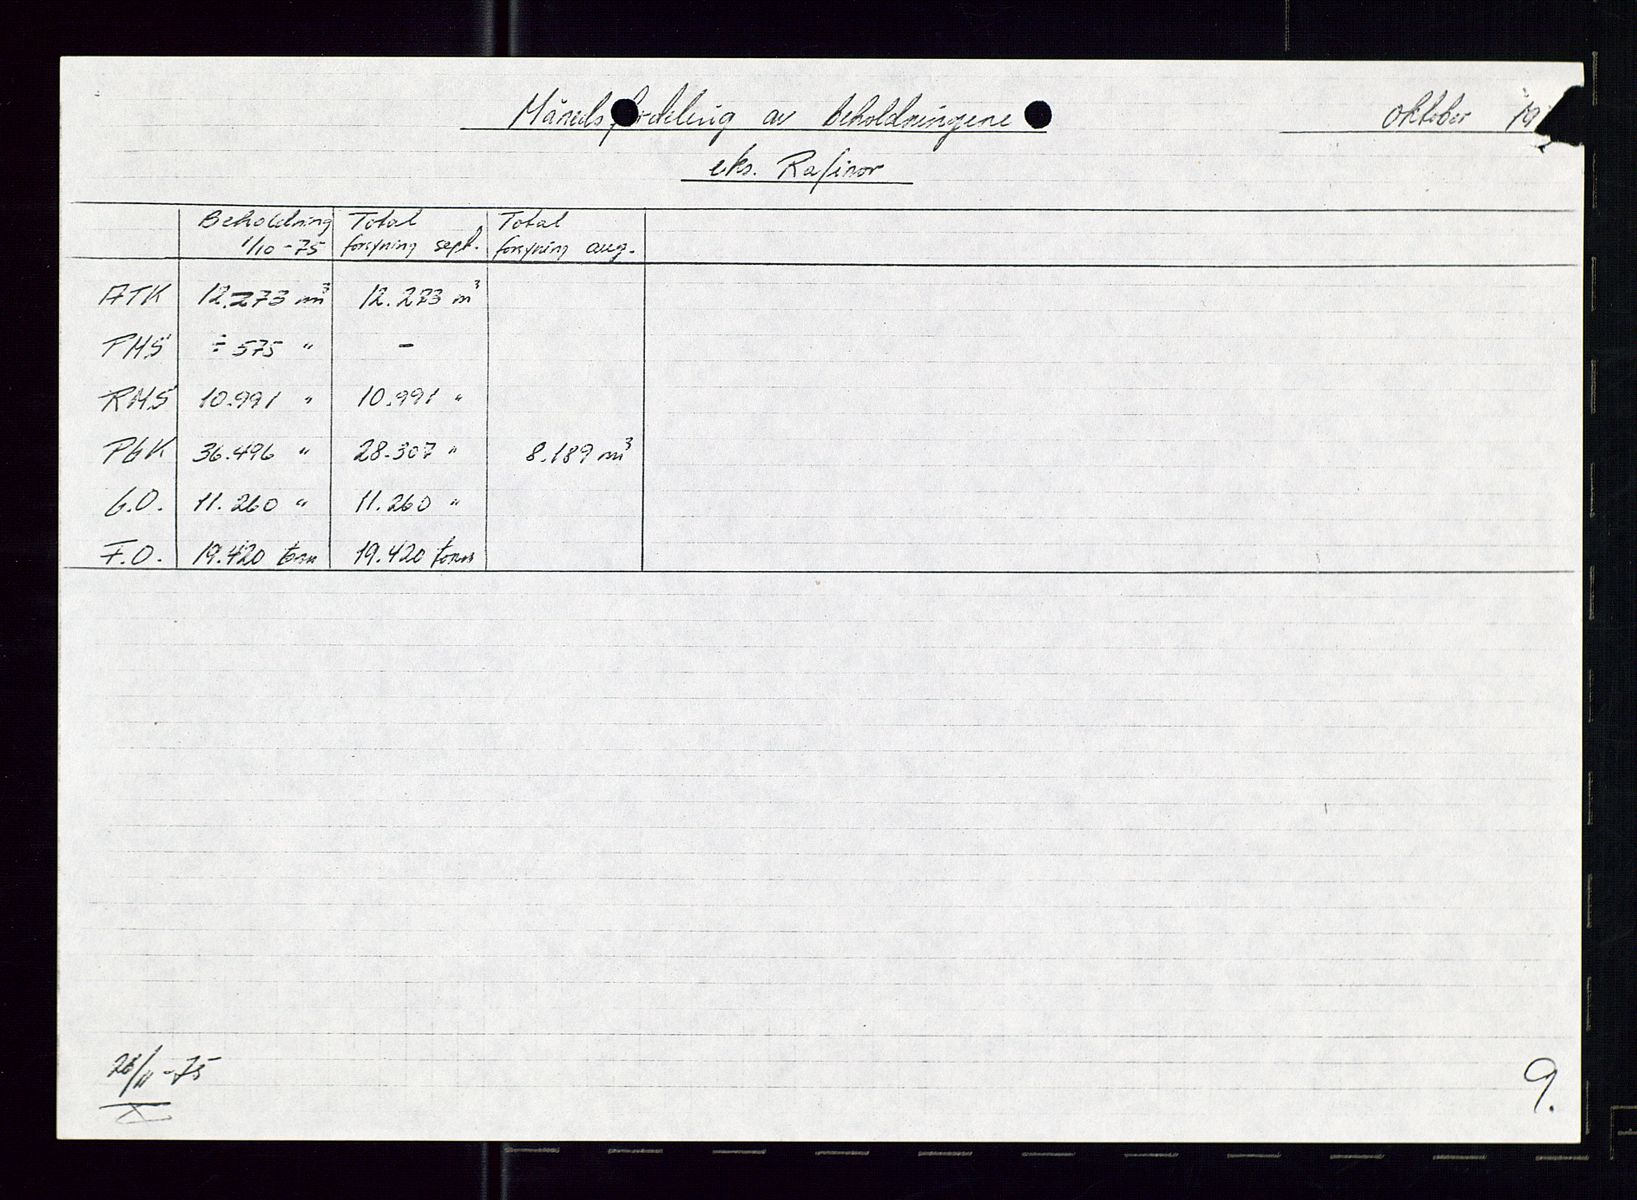 Månedsfordeling av beholdningene
oktober 19
eks. Rafinor
Beholdning 1/10-75 Total forsyning sept. Total forsyning aug.
ATK 12.273 m³ 12.273 m³
PMS ÷ 575 " -
RMS 10.991 " 10.991 "
PGK 36.496 " 28.307 " 8.189 m³
G.O. 11.260 " 11.260 "
F.O. 19.420 tonn 19.420 tonn
/11-75
9.